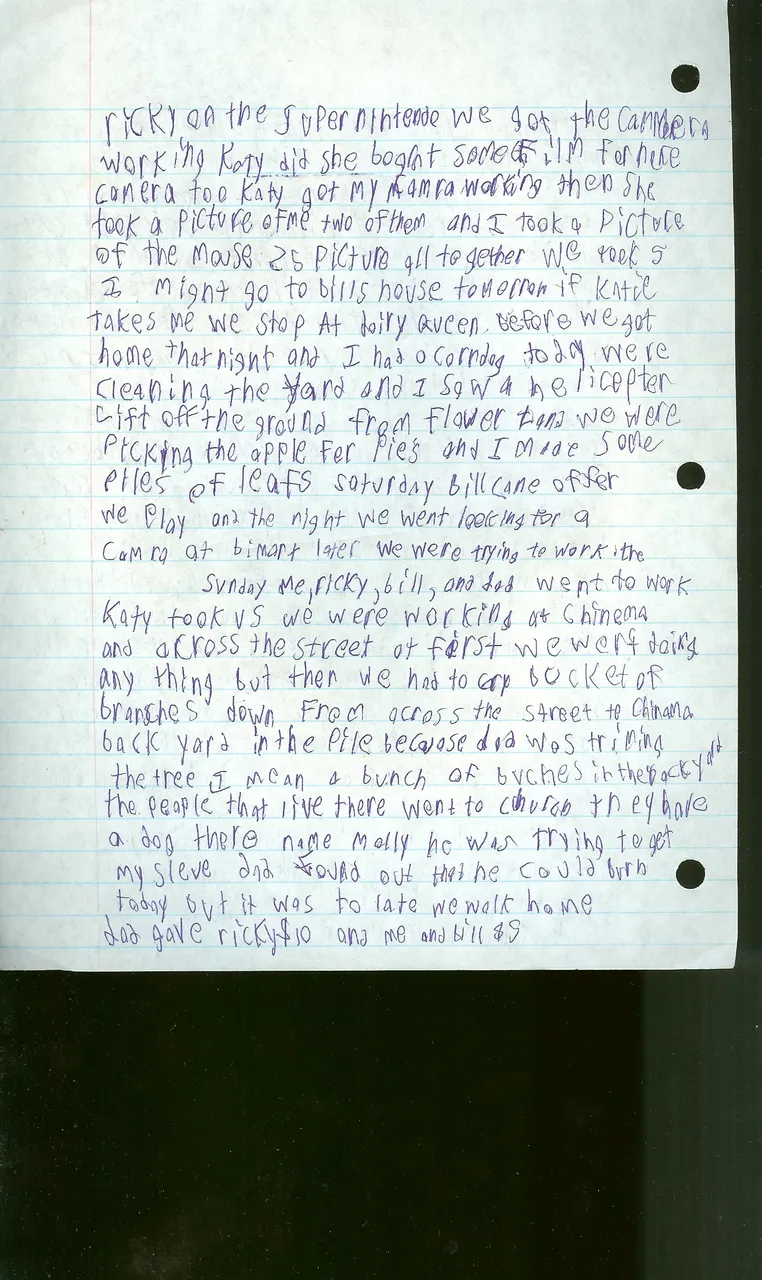 ricky on the Super nintendo we got the Cammera
working Katy did she boght some Film for here
camera too Katy got my kamra working then she
took a picture of me two of them and I took a picture
of the mouse 25 picture all together we took 5
I might go to bills house tomorrow if Katie
takes me we stop At dairy queen before we got
home that night and I had a corndog today were
cleaning the yard and I saw a helicopter
Lift off the ground from flower land we were
Picking the apple for Pies and I made some
piles of leafs saturday Bill came offer
we Play and the night we went looking for a
Camra at bimart later we were trying to work the
Sunday me, ricky, bill, and dad went to work
Katy took us we were working at Chinema
and across the street at first we went doing
any thing but then we had to cary bocket of
branches down From across the street to Chinama
back yard in the Pile because dad was triming
the tree I mean a bunch of buches in the backyard
the people that live there went to church they have
a dog there name Molly he was trying to get
my sleve dad found out that he could burn
today but it was to late we walk home
dad gave ricky $10 and me and bill $5